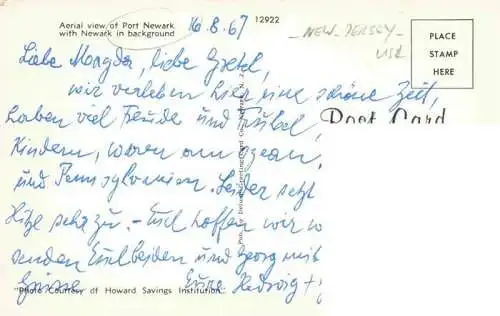 Aerial view of Port Newark
with Newark in background
16.8.67
12922
NEW-JERSEY-
USA
PLACE
STAMP
HERE
Post Card
Liebe Magda, liebe Gretel,
wir verleben hier eine schöne Zeit,
haben viel Freude und Trubel,
Kindern, waren am Ozean,
und Pennsylvanien. Leider setzt
Hitze sehr zu. - Euch hoffen wir w
senden Euch beiden und Georg mit
Grüsse Eure Hedwig +
"Photo Courtesy of Howard Savings Institution."